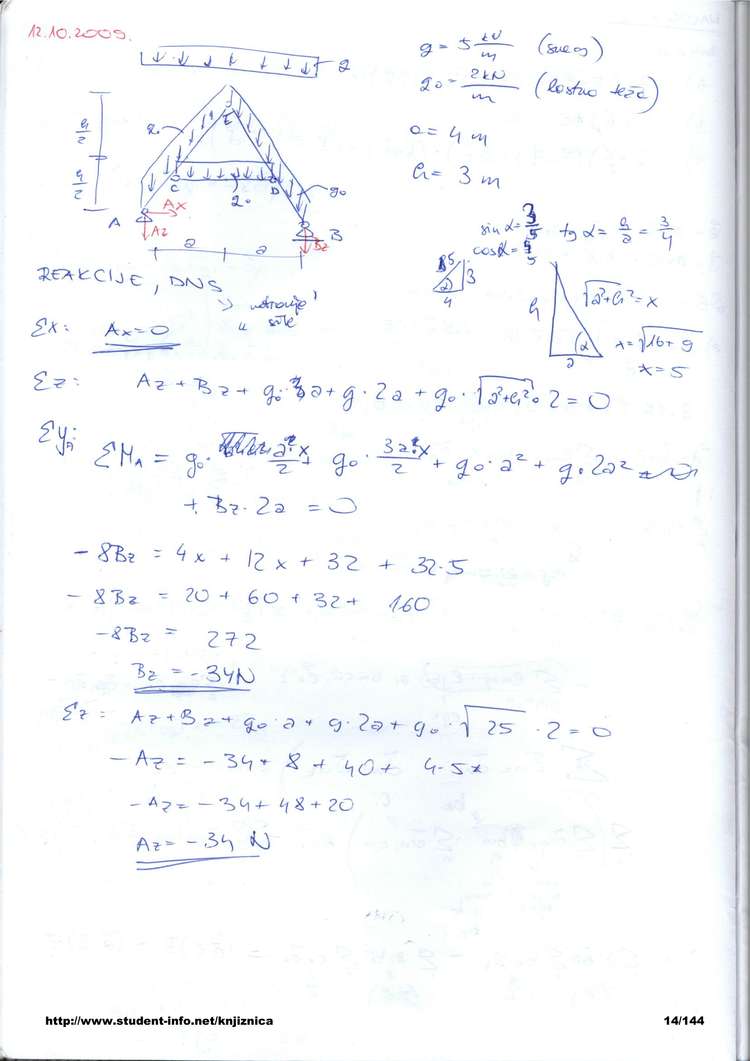 12.10.2009.
g = 5 kN/m (sneg)
g₀ = 2kN/m (lastna teža)
a = 4 m
h = 3 m
g
h/2
h/2
g₀
E
C
D
g₀
g₀
A
Ax
Az
B
Bz
a
a
sin α = 3/5
cos α = 4/5
tg α = h/a = 3/4
5
3
α
4
h
√a²+h² = x
α
a
x = √16+9
x = 5
REAKCIJE, DNS
notranje
sile
Σx: Ax = 0
Σz: Az + Bz + g₀·a + g·2a + g₀·√a²+h²·2 = 0
Σy:
ΣM_A = g₀· a·x/2 + g₀· 3a·x/2 + g₀·a² + g·2a²
+ Bz·2a = 0
-8Bz = 4x + 12x + 32 + 32·5
-8Bz = 20 + 60 + 32 + 160
-8Bz = 272
Bz = -34N
Σz = Az + Bz + g₀·a + g·2a + g₀·√25·2 = 0
-Az = -34 + 8 + 40 + 4·5
-Az = -34 + 48 + 20
Az = -34 N
http://www.student-info.net/knjiznica
14/144